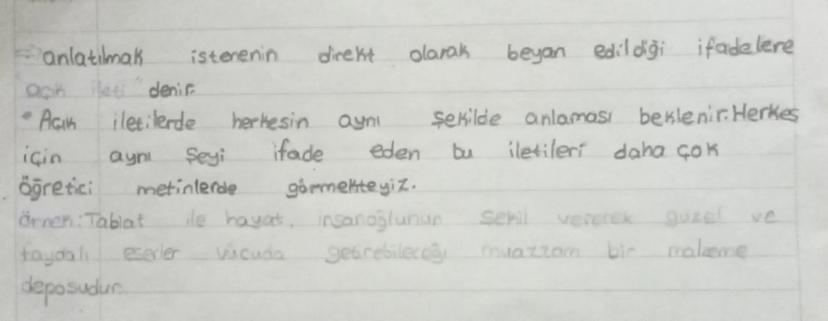 - anlatılmak istenenin direkt olarak beyan edildiği ifadelere
"açık ileti" denir.
• Açık iletilerde herkesin aynı şekilde anlaması beklenir. Herkes
için aynı şeyi ifade eden bu iletileri daha çok
öğretici metinlerde görmekteyiz.
örnek: Tabiat ile hayat, insanoğlunun şekil vererek güzel ve
faydalı eserler vücuda getirebileceği muazzam bir malzeme
deposudur.